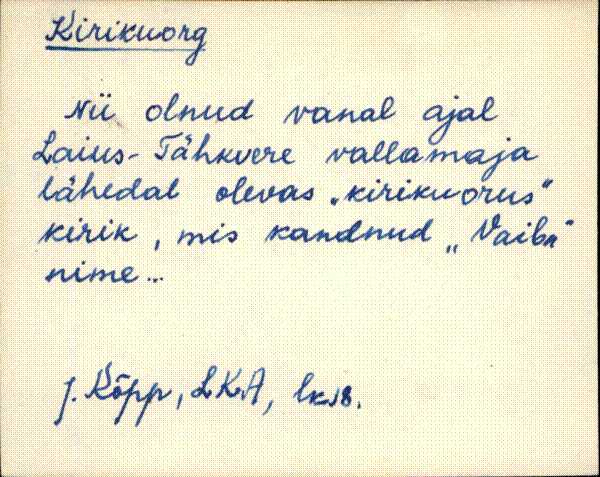 Kirikuorg
Nii olnud vanal ajal
Laius-Tähkvere vallamaja
lähedal olevas „kirikuorus"
kirik, mis kandnud „Vaiba"
nime...
J. Kõpp, LKA, lk 18.